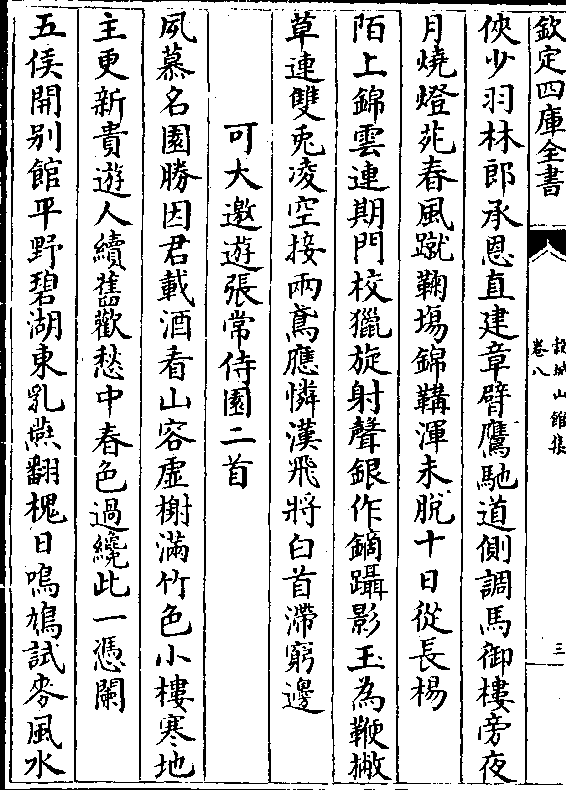 欽定四庫全書
穀城山館集
卷八
三
俠少羽林郎承恩直建章臂鷹馳道側調馬御樓旁夜
月燒燈苑春風蹴鞠塲錦鞲渾未脫十日從長楊
陌上錦雲連期門校獵旋射聲銀作鏑躡影玉為鞭撇
草連雙兎凌空接兩鳶應憐漢飛將白首滯窮邊
可大邀遊張常侍園二首
夙慕名園勝因君載酒看山容虛榭滿竹色小樓寒地
主更新貴遊人續舊歡愁中春色過纔此一憑闌
五侯開别館平野碧湖東乳燕翻槐日鳴鳩試麥風水